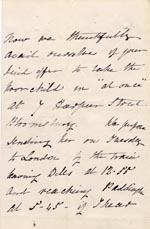 Now we thankfully
avail ourselves of your
kind offer to take the
poor child in "at once"
at 7 Harpur Street
Bloomsbury
sending her on Tuesday
to London by the train
leaving at 13.55
and reaching Padding
at 5-45- if I hear